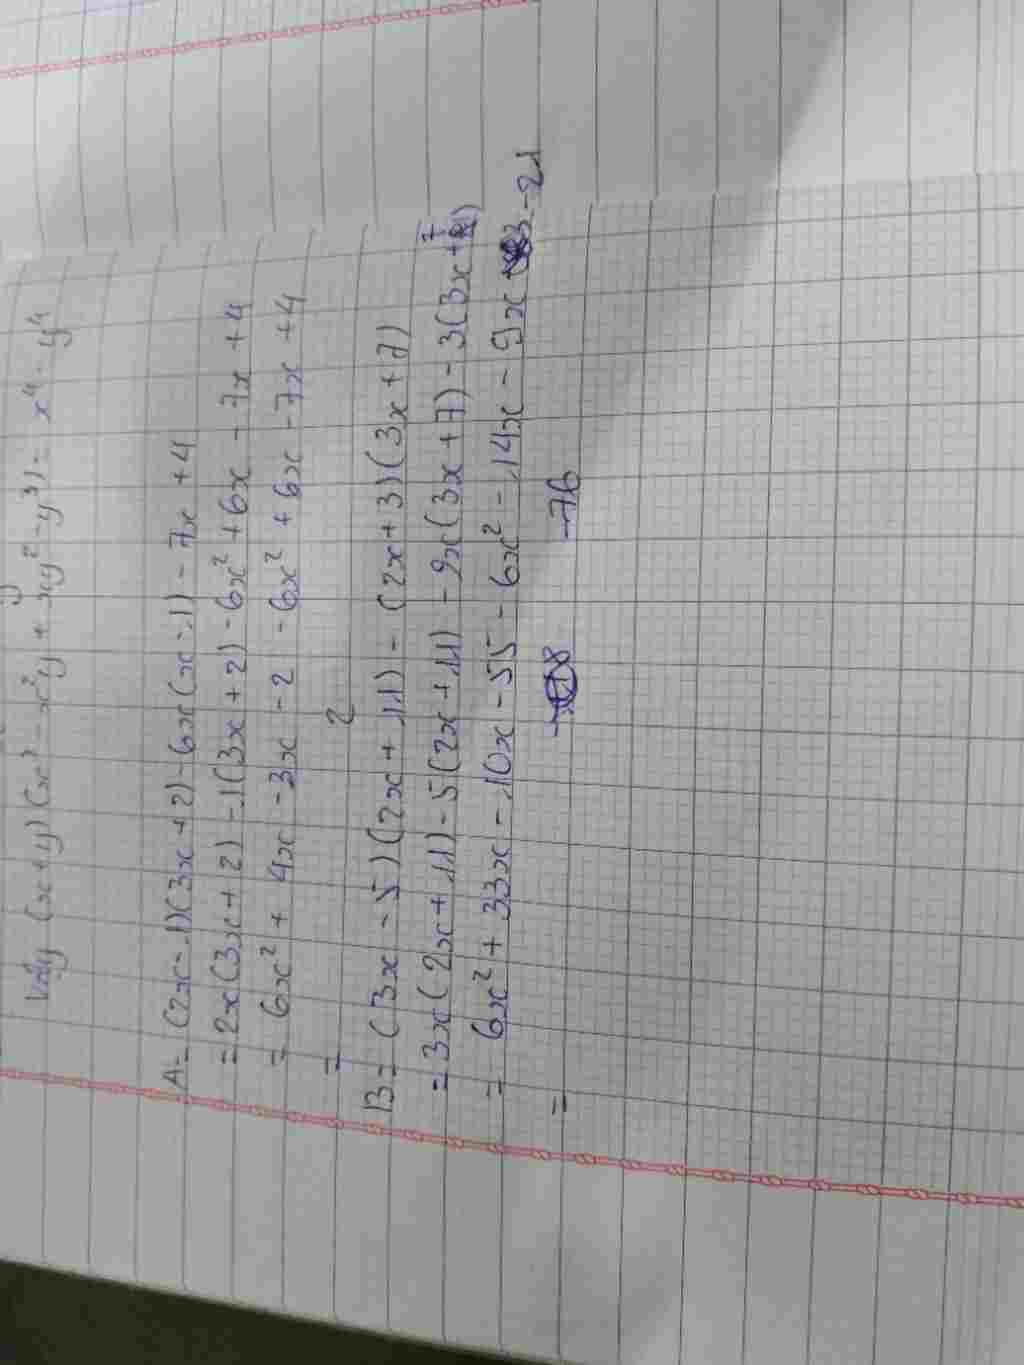 Vậy (x+y)(x³ - x²y + xy² - y³) = x⁴ - y⁴
A = (2x-1)(3x+2) - 6x(x-1) - 7x + 4
= 2x(3x+2) - 1(3x+2) - 6x² + 6x - 7x + 4
= 6x² + 4x - 3x - 2 - 6x² + 6x - 7x + 4
= 2
B = (3x - 5)(2x + 11) - (2x + 3)(3x + 7)
= 3x(2x + 11) - 5(2x + 11) - 2x(3x + 7) - 3(3x + 7)
= 6x² + 33x - 10x - 55 - 6x² - 14x - 9x - 21
= -76